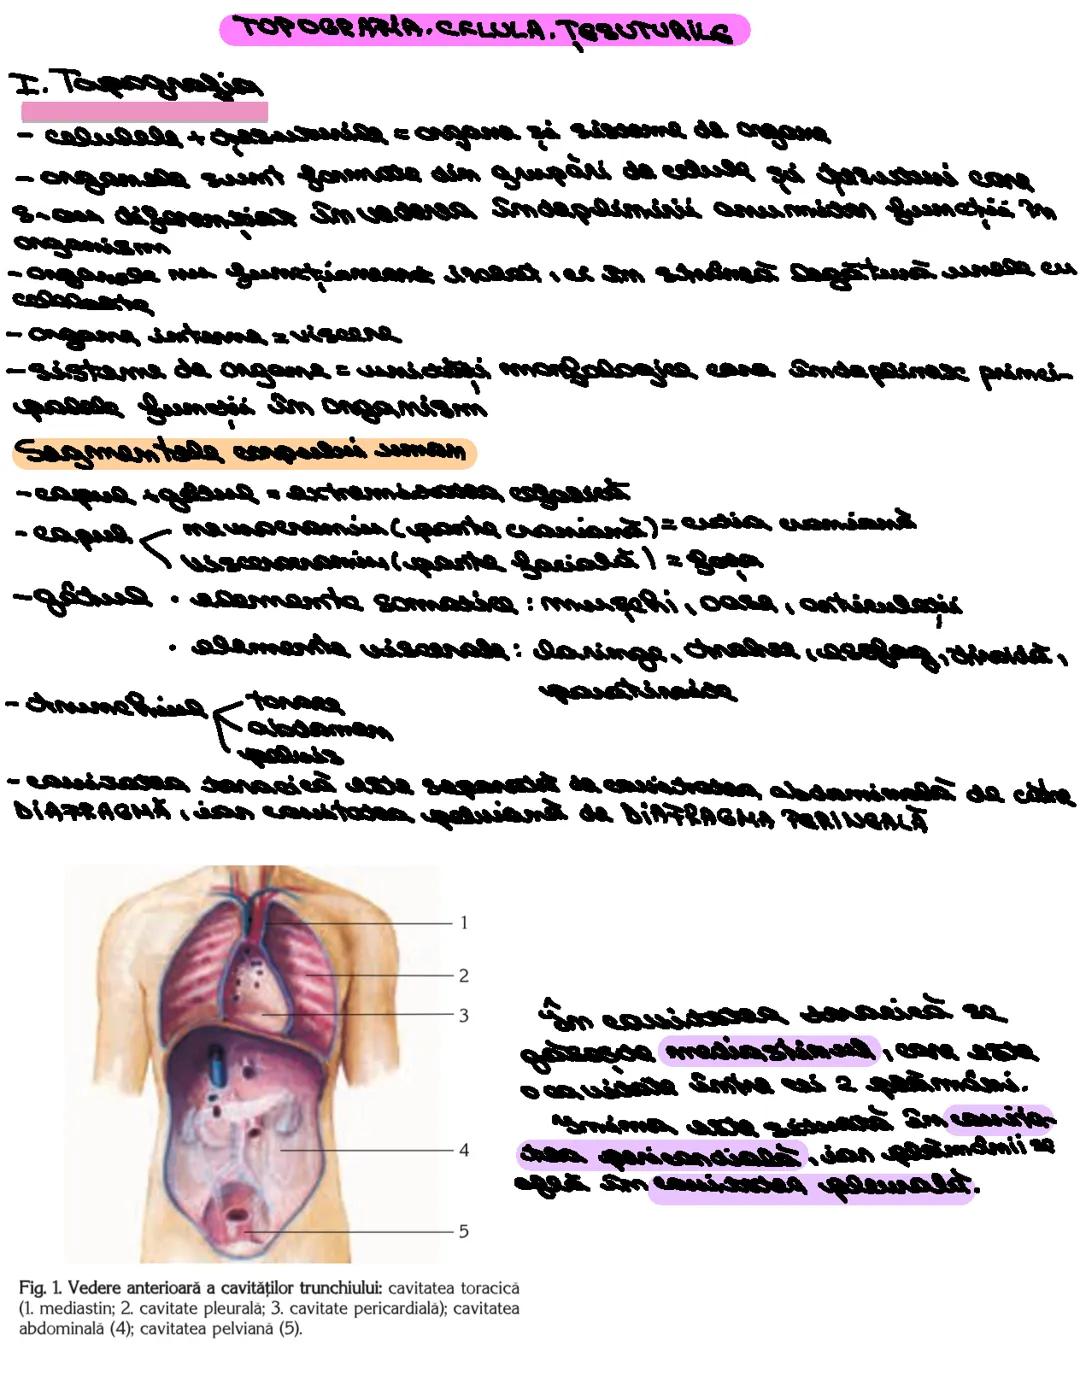 TOPOGRAFIA. CELULA. ȚESUTURILE
I. Topografia
- celulele + țesuturile = organe și sisteme de organe
- organele sunt formate din grupări de celule și țesuturi care
s-au diferențiat în vederea îndeplinirii anumitor funcții în
organism
- organele nu funcționează izolat, ci în strânsă legătură unele cu
celelalte
- organe interne = viscere
- sisteme de organe = unități morfologice care îndeplinesc princi-
palele funcții în organism
Segmentele corpului uman
- capul + gâtul = extremitatea cefalică
- capul
neurocraniu (parte craniană) = cutia craniană
viscerocraniu (parte facială) = fața
- gâtul • elemente somatice: mușchi, oase, articulații
• elemente viscerale: laringe, trahee, esofag, tiroidă,
paratiroide
- trunchiul
torace
abdomen
pelvis
- cavitatea toracică este separată de cavitatea abdominală de către
DIAFRAGMĂ, iar cavitatea pelviană de DIAFRAGMA PERINEALĂ
1
2
3
4
5
În cavitatea toracică se
găsește mediastinul, care este
o cavitate între cei 2 plămâni.
Inima este situată în cavita-
tea pericardială, iar plămânii se
află în cavitatea pleurală.
Fig. 1. Vedere anterioară a cavităților trunchiului: cavitatea toracică
(1. mediastin; 2. cavitate pleurală; 3. cavitate pericardială); cavitatea
abdominală (4); cavitatea pelviană (5).